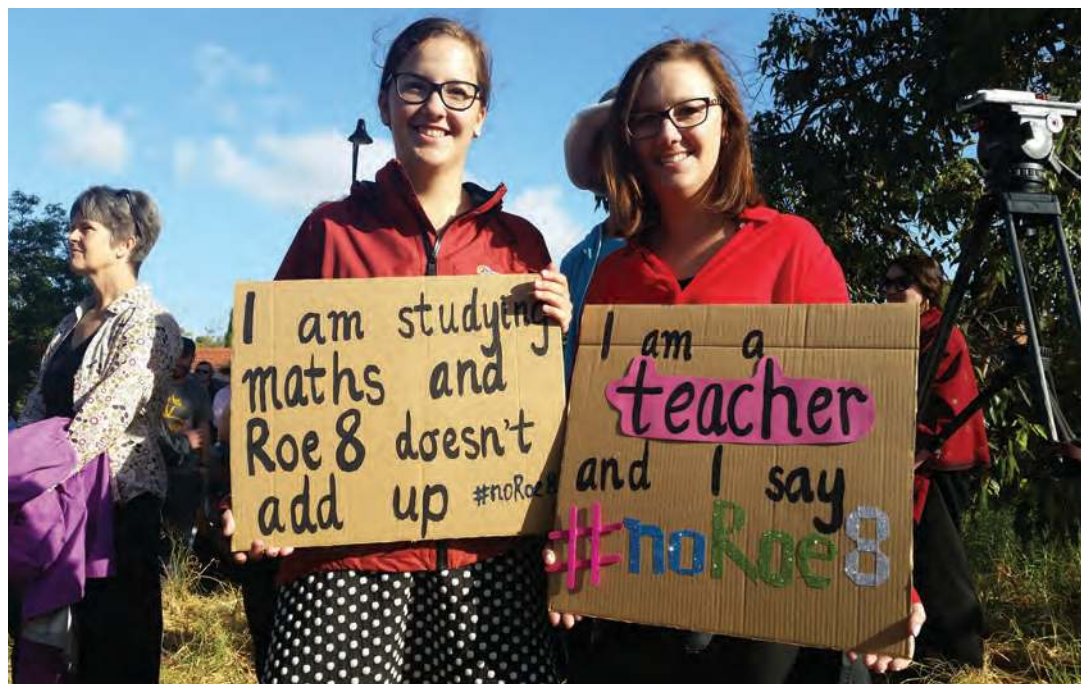 I am studying
maths and
Roe 8 doesn't
add up #noRoe8
I am a
teacher
and I say
#noRoe8